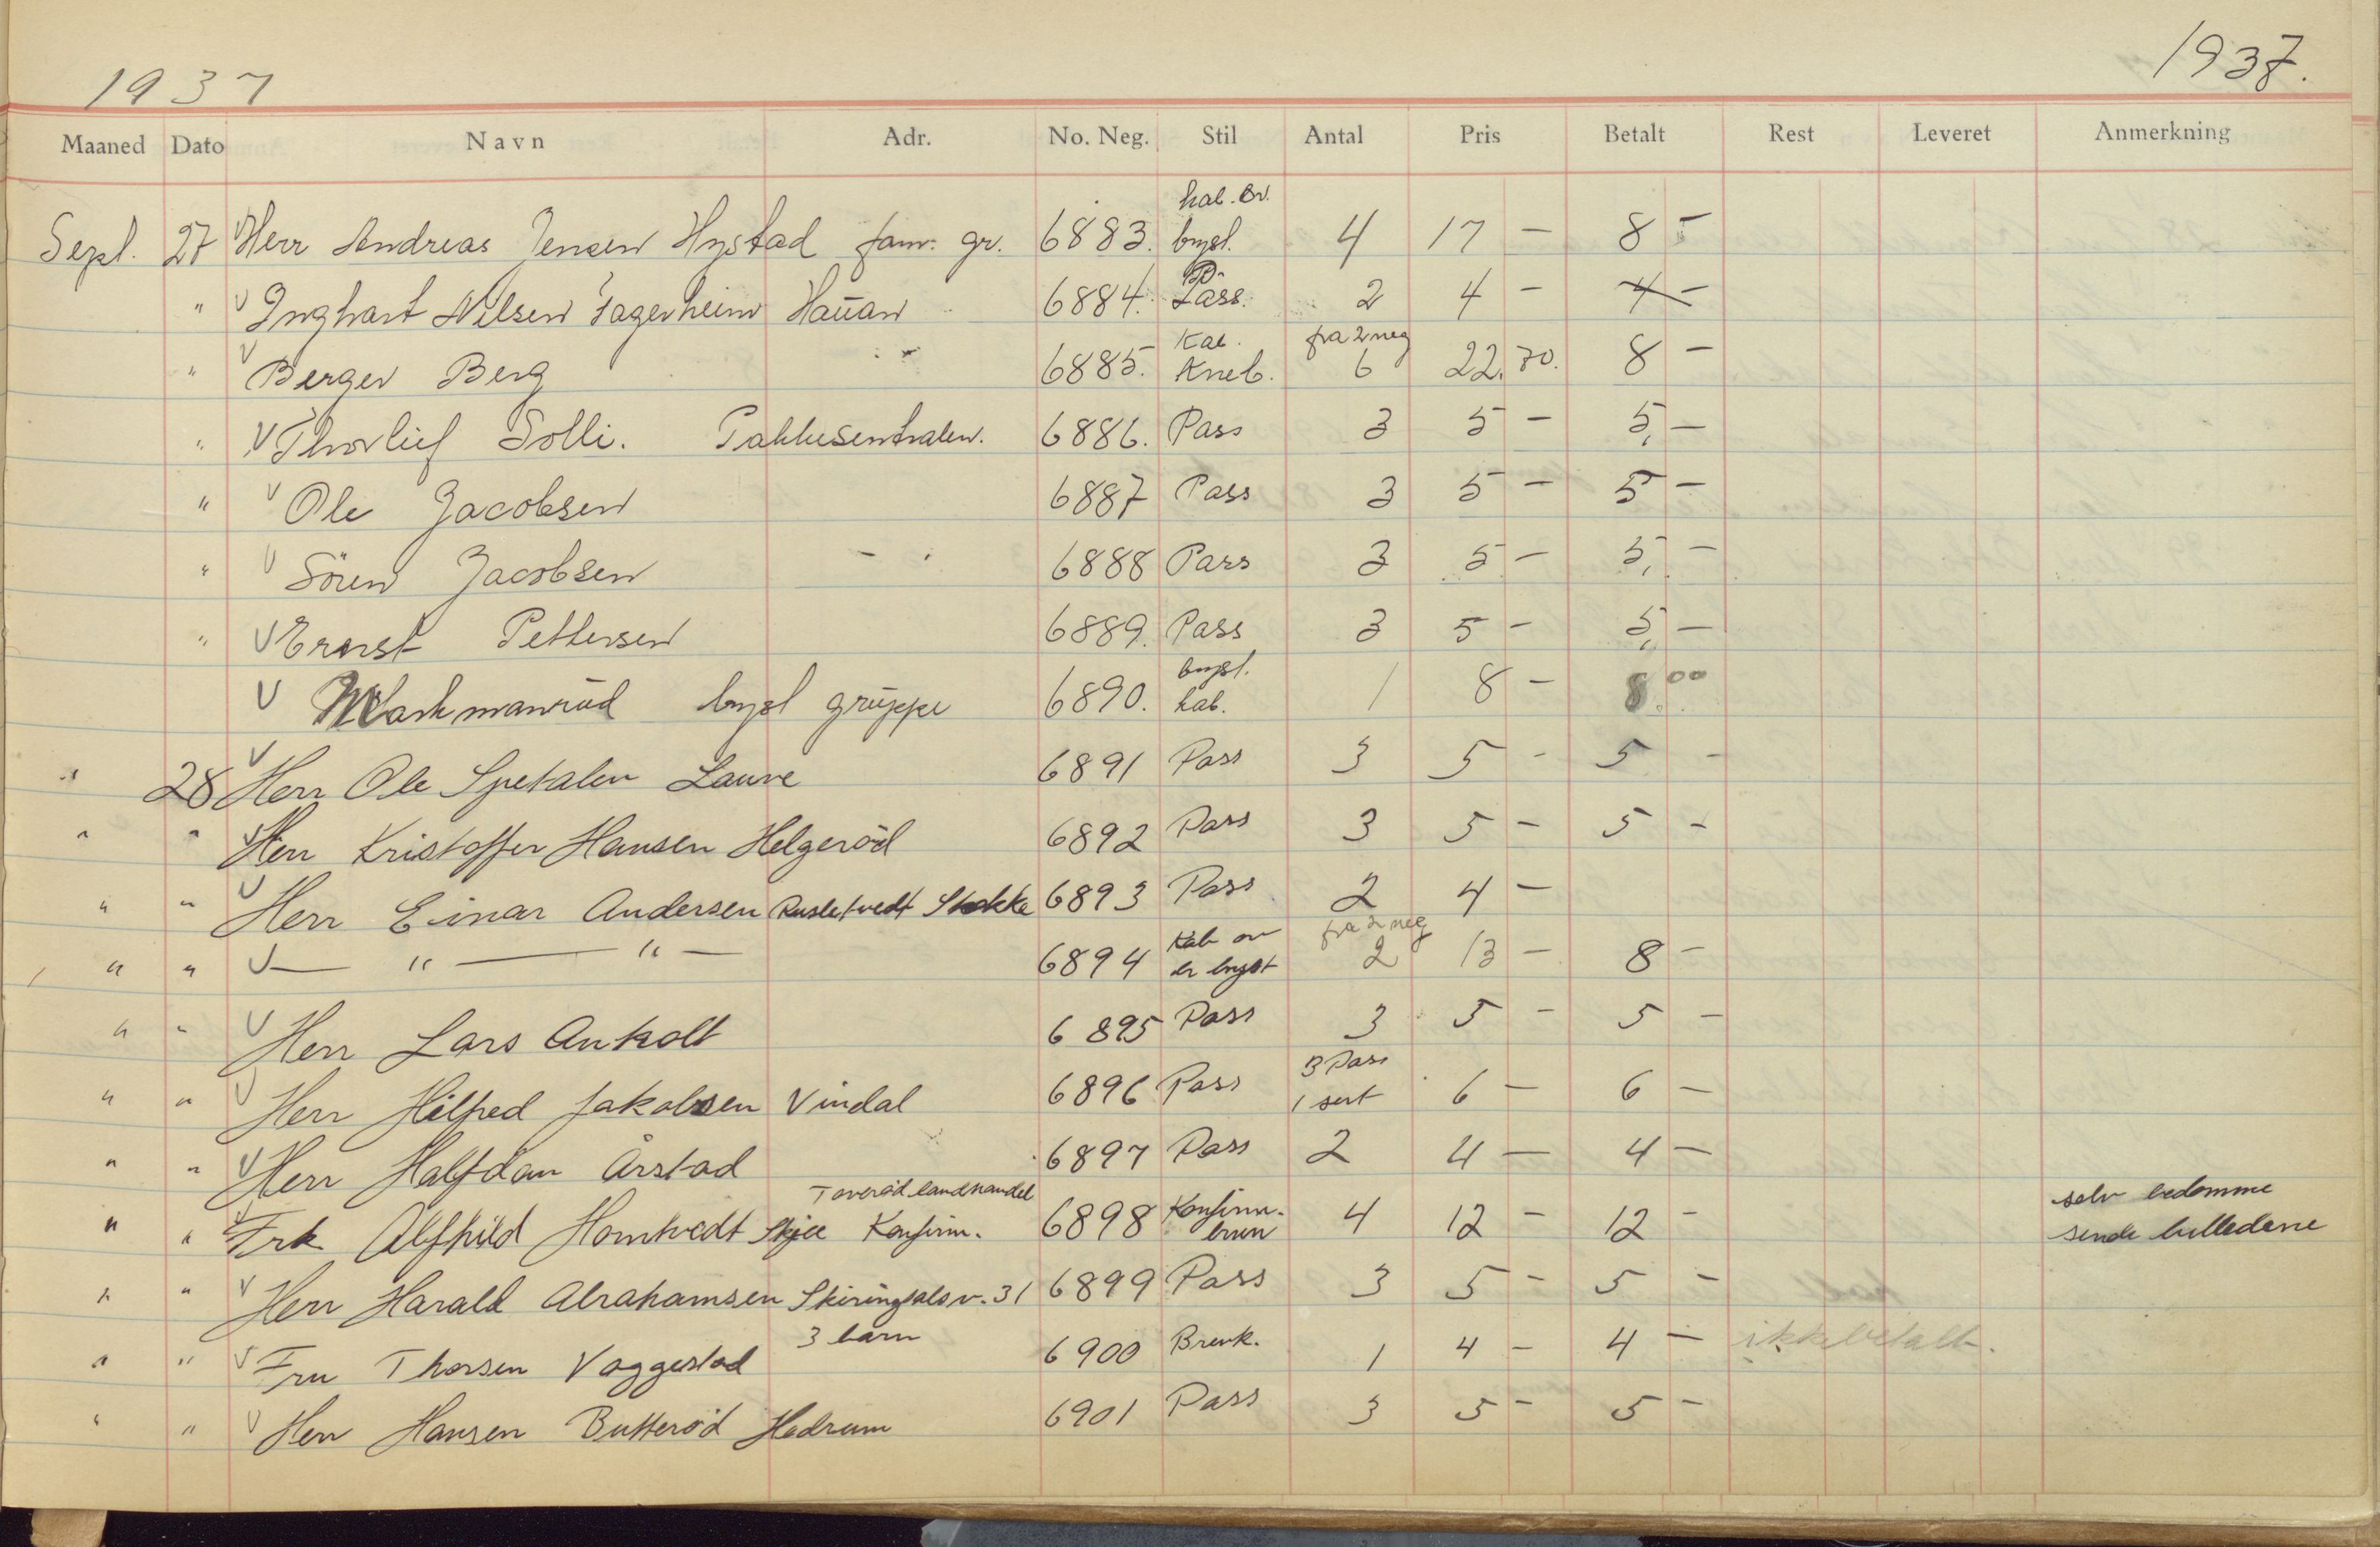 1937 1937.
Maaned Dato Navn Adr. No. Neg. Stil Antal Pris Betalt Rest Leveret Anmerkning
Sept. 27 V Herr Andreas Jensen Hystad fam. gr. 6883. kab. Br. bryst. 4 17 - 8 -
" V Inghart Nilsen Fagerheim Hauan 6884. Pass. 2 4 - 4 -
" V Berger Berg " 6885. Kab. Kneb. fra 2 neg 6 22.70. 8 -
" V Thorlief Solli. Pakkesentralen. 6886. Pass 3 5 - 5,-
" V Ole Jacobsen 6887 Pass 3 5 - 5 -
" V Sören Jacobsen - " 6888 Pass 3 5 - 5,-
" V Ernst Pettersen 6889. Pass 3 5 - 5,-
V bryst gruppe 6890. bryst. kab. 1 8 - 8.00
" 28 V Herr Ole Spetalen Lauve 6891 Pass 3 5 - 5 -
" " V Herr Kristoffer Hansen Helgeröd 6892 Pass 3 5 - 5 -
" " V Herr Einar Andersen Rusletvedt Stokke 6893 Pass 2 4 -
" " V — " — " — 6894 Kab br bryst fra 2 neg 2 13 - 8 -
" " V Herr Lars Ankolt 6895 Pass 3 5 - 5 -
" " V Herr Hilfred Jakobsen Vindal 6896 Pass 3 Pass 1 sert 6 - 6 -
" " V Herr Halfdan Årstad 6897 Pass 2 4 - 4 -
" " V Frk Alfhild Homtvedt Skjee Konfirm. Toveröd landhandel 6898 Konfirm. brun 4 12 - 12 - selv bedømme sende billedene
" " V Herr Harald Abrahamsen Skiringsals v. 31 6899 Pass 3 5 - 5 -
" " V Fru Thorsen Vaggestad 3 barn 6900 Brevk. 1 4 - 4 - ikke betalt.
" " V Herr Hansen Butteröd Hedrum 6901 Pass 3 5 - 5 -